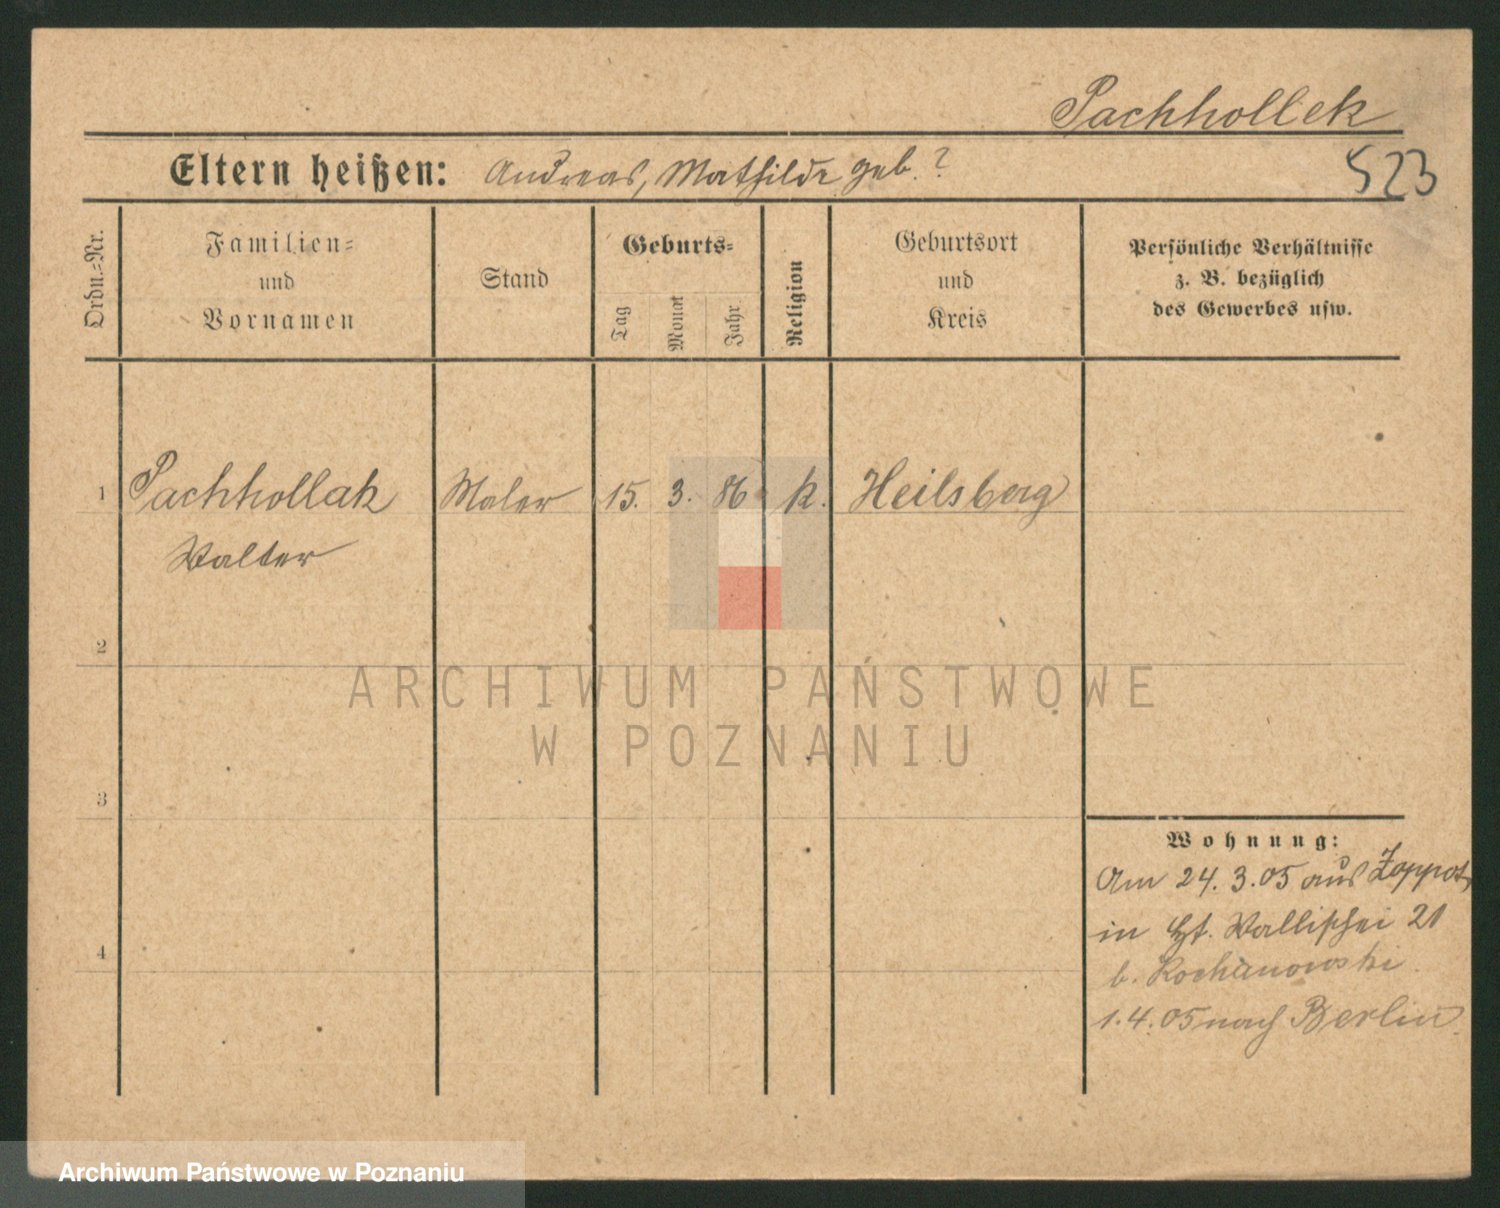 Pachhollek
Eltern heißen: Andreas, Mathilde geb. ?
523
Ordn.=Nr.
Familien=
und
Vornamen
Stand
Geburts=
Tag
Monat
Jahr
Religion
Geburtsort
und
Kreis
Persönliche Verhältnisse
z. B. bezüglich
des Gewerbes usw.
1 Pachhollak Maler 15. 3. 86 k. Heilsberg
Walter
2
ARCHIWUM PAŃSTWOWE
W POZNANIU
3
Wohnung:
Am 24.3.05 aus Zoppot,
in Wallischei 21
4
b. Kochanowski
1.4.05 nach Berlin.
Archiwum Państwowe w Poznaniu